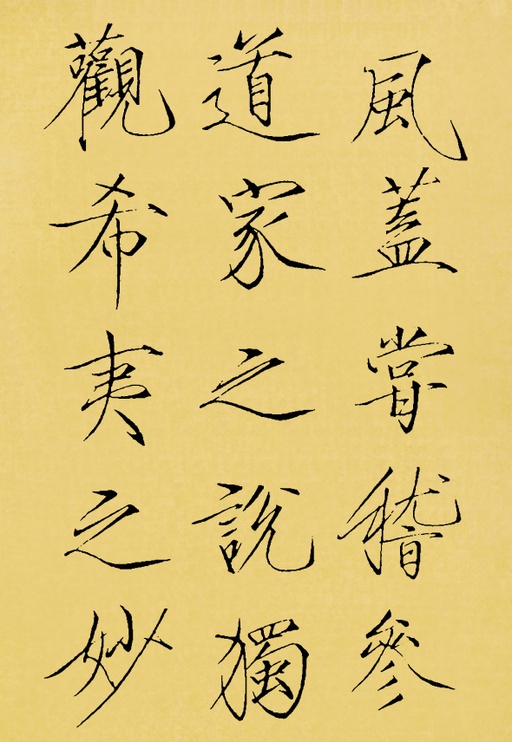 風蓋甞稽參
道家之說獨
觀希夷之妙